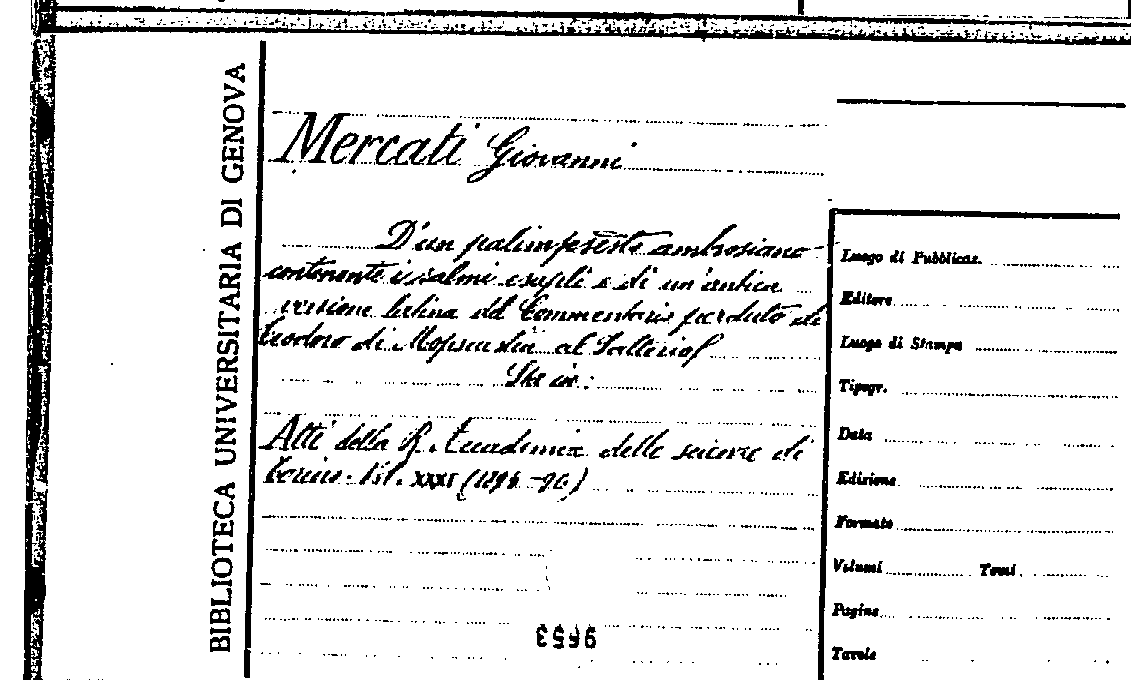 BIBLIOTECA UNIVERSITARIA DI GENOVA
Mercati Giovanni
D'un palimpsesto ambrosiano
contenente i salmi esapli e di un'antica
versione latina del Commentario perduto di
Teodoro di Mopsuestia al Salterio
Sta in:
Atti della R. Accademia delle scienze di
Torino. Vol. XXXI (1895-96)
9653
Luogo di Pubblicaz.
Editore
Luogo di Stampa
Tipogr.
Data
Edizione
Formato
Volumi Tomi
Pagine
Tavole